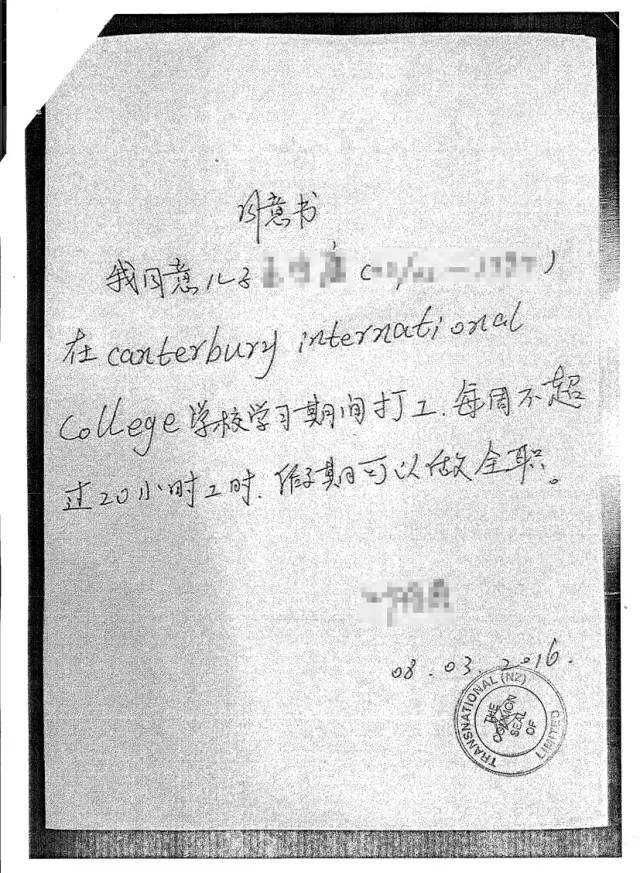 同意书
我同意儿子
在canterbury international
College学校学习期间打工.每周不超
过20小时工时.假期可以做全职。
08.03.2016.
TRANSNATIONAL (NZ) LIMITED
THE COMMON SEAL OF